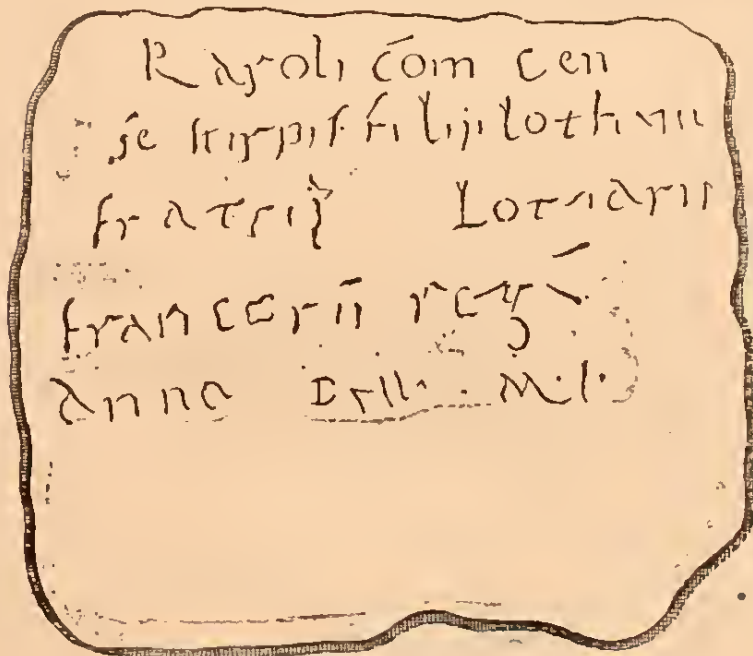 Karoli cōm Gen
se stirpis filii lothari
fratris Lotharii
francorū regē
anno Dni. M.l.